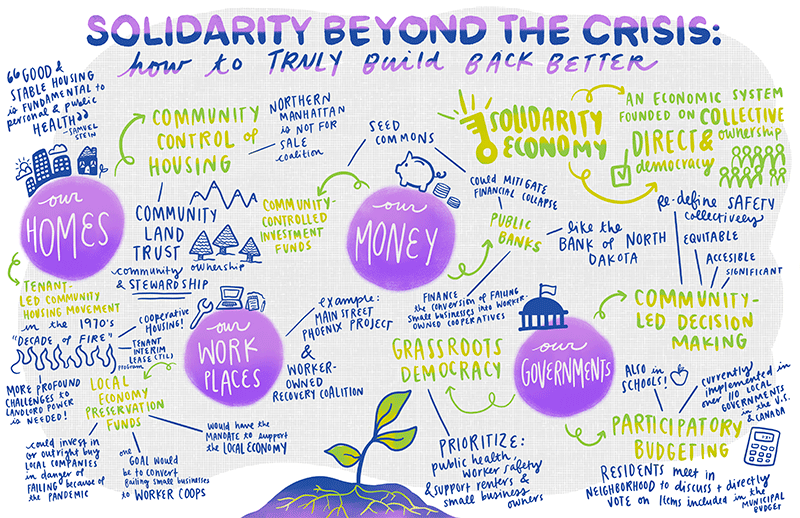 SOLIDARITY BEYOND THE CRISIS:
how to TRULY Build BACK BETTER
"GOOD &
STABLE HOUSING
is FUNDAMENTAL to
personal & public
HEALTH"
-SAMUEL
STEIN
COMMUNITY
CONTROL of
HOUSING
NORTHERN
MANHATTAN
is NOT FOR
SALE
coalition
our
HOMES
COMMUNITY
LAND
TRUST
ownership
community
& STEWARDSHIP
TENANT-
LED COMMUNITY
HOUSING MOVEMENT
in the 1970's
"DECADE of FIRE"
cooperative
HOUSING!
TENANT
INTERIM
LEASE (TIL)
Program
MORE PROFOUND
CHALLENGES to
LANDLORD POWER
is NEEDED!
SEED
COMMONS
COMMUNITY-
CONTROLLED
INVESTMENT
FUNDS
our
MONEY
COULD MITIGATE
FINANCIAL COLLAPSE
PUBLIC
BANKS
like the
BANK of NORTH
DAKOTA
FINANCE
the CONVERSION of FAILING
small businesses into WORKER-
OWNED COOPERATIVES
SOLIDARITY
ECONOMY
AN ECONOMIC SYSTEM
FOUNDED ON COLLECTIVE
ownership
DIRECT &
democracy
our
WORK
PLACES
example:
MAIN STREET
PHOENIX PROJECT
&
WORKER-
OWNED
RECOVERY COALITION
LOCAL
ECONOMY
PRESERVATION
FUNDS
could invest in
or outright buy
LOCAL COMPANIES
in danger of
FAILING because of
the PANDEMIC
one
GOAL WOULD
be to CONVERT
failing small businesses
to WORKER COOPS
would have the
MANDATE to support
the LOCAL ECONOMY
our
GOVERNMENTS
re-define SAFETY
collectively
EQUITABLE
ACCESIBLE
SIGNIFICANT
COMMUNITY-
LED DECISION
MAKING
GRASSROOTS
DEMOCRACY
PRIORITIZE:
public health,
worker safety
& support renters &
small business
owners
ALSO in
SCHOOLS!
currently
implemented in
over 110 LOCAL
GOVERNMENTS
in the U.S.
& CANADA
PARTICIPATORY
BUDGETING
RESIDENTS meet in
NEIGHBORHOOD to discuss + directly
VOTE on items included in the
MUNICIPAL
BUDGET